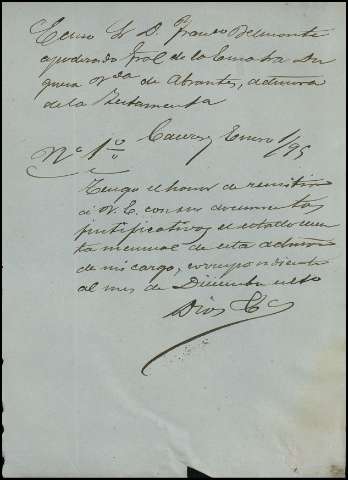 Ecmo Sr D. Franco Belmonte
apoderado Gral de la Ecma Sra Du
quesa Vda de Abrantes, admora
de la Testamenta
Caceres Enero 1/95
No 1o
Tengo el honor de remitir
á V. E. con sus documentos
justificativos el estado cuen
ta mensual de esta admon
de mi cargo, correspondiente
al mes de Diciembre ulto
Dios &c